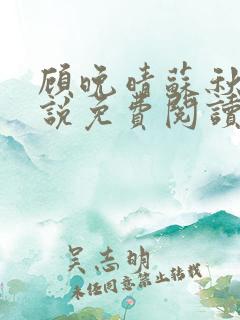 顾晚晴蘇秋
說免費閱讀
吴志明
未经同意禁止转载